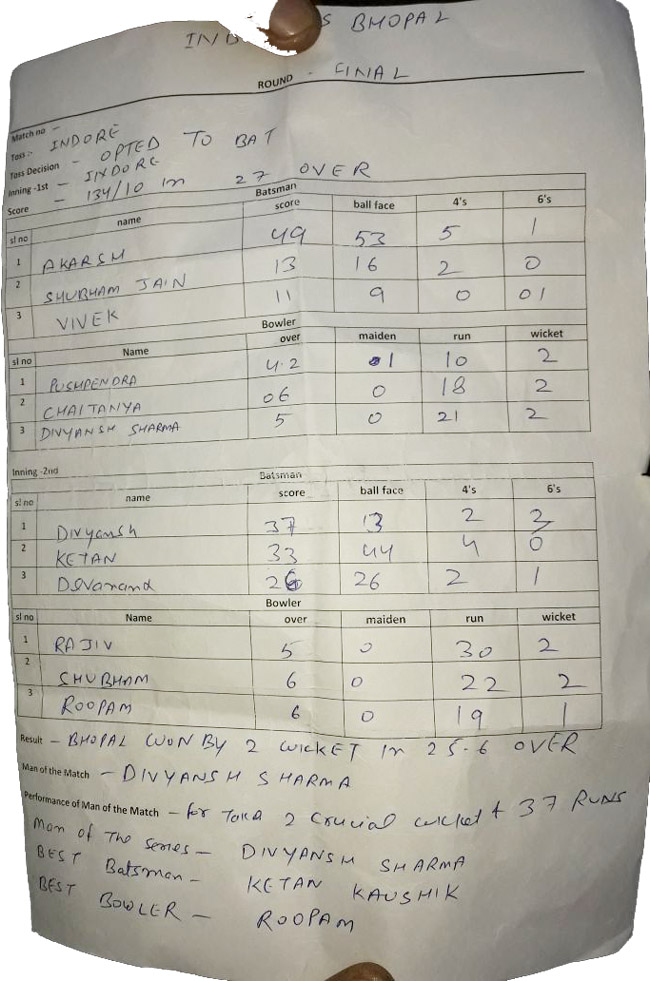 S BHOPAL
ROUND - FINAL
Match no -
Toss :- INDORE
Toss Decision - OPTED TO BAT
Inning -1st - INDORE
Score - 134/10 in 27 OVER
Batsman
sl no name score ball face 4's 6's
1 AKARSH 49 53 5 1
2 SHUBHAM JAIN 13 16 2 0
3 VIVEK 11 9 0 01
Bowler
sl no Name over maiden run wicket
1 PUSHPENDRA 4.2 1 10 2
2 CHAITANYA 06 0 18 2
3 DIVYANSH SHARMA 5 0 21 2
Inning -2nd
Batsman
sl no name score ball face 4's 6's
1 Divyansh 37 13 2 3
2 KETAN 33 44 4 0
3 Devanand 26 26 2 1
Bowler
sl no Name over maiden run wicket
1 RAJIV 5 0 30 2
2 SHUBHAM 6 0 22 2
3 ROOPAM 6 0 19 1
Result - BHOPAL WON BY 2 WICKET in 25.6 OVER
Man of the Match - DIVYANSH SHARMA
Performance of Man of the Match - for 2 crucial wicket + 37 RUNS
Man of The Series - DIVYANSH SHARMA
BEST Batsman - KETAN KAUSHIK
BEST BOWLER - ROOPAM